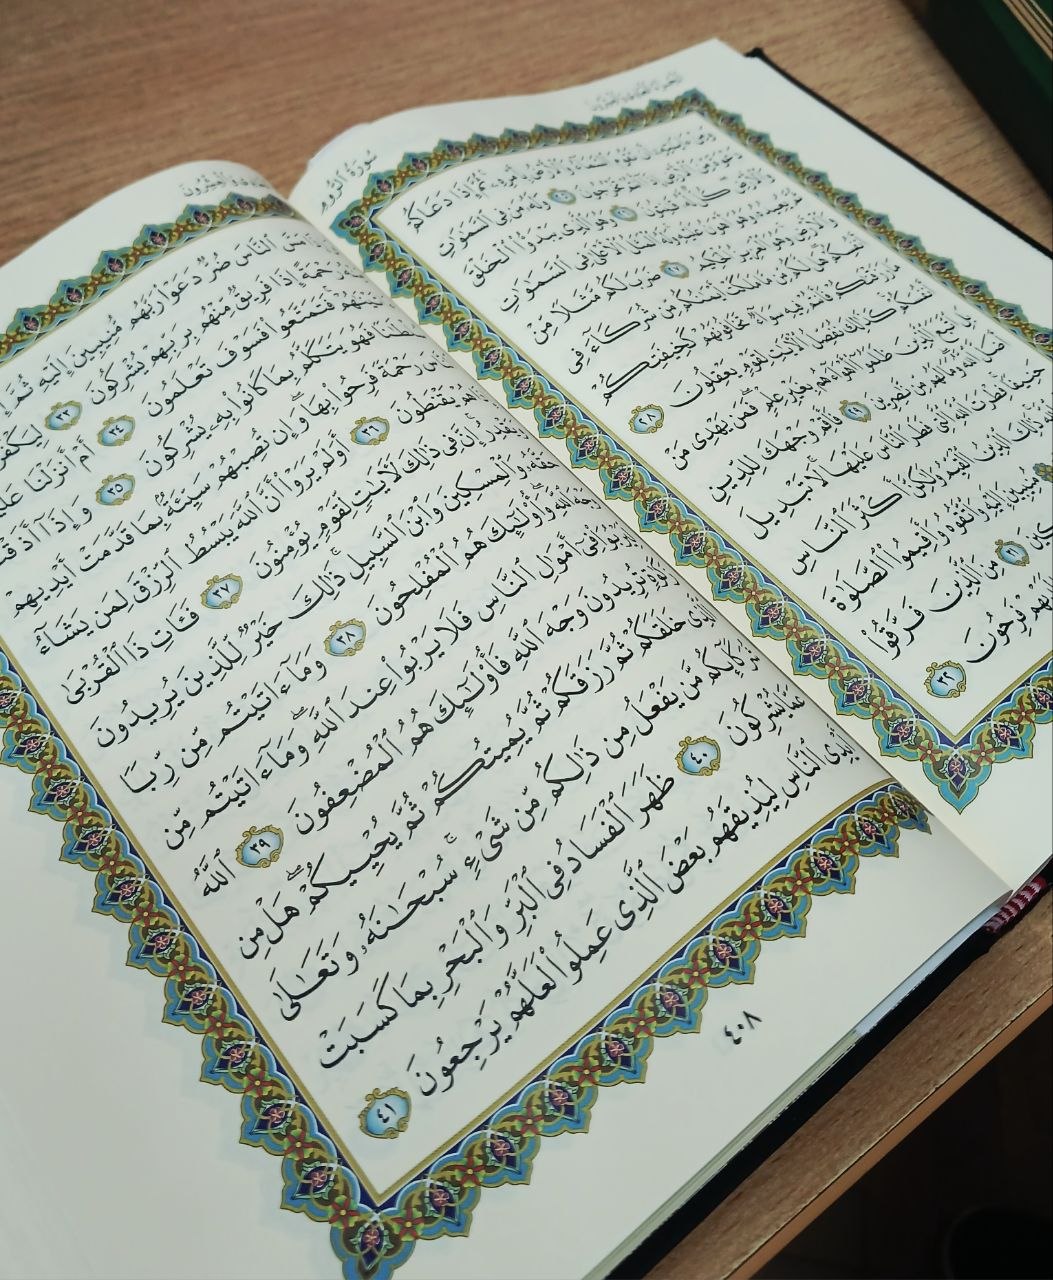 سُورَةُ الرُّومِ
أَن تَقُومَ السَّمَآءُ وَالْأَرْضُ بِأَمْرِهِۦ ثُمَّ إِذَا دَعَاكُمْ
دَعْوَةً مِّنَ الْأَرْضِ إِذَآ أَنتُمْ تَخْرُجُونَ ٢٥ وَلَهُۥ مَن فِى السَّمَٰوَٰتِ
كُلٌّ لَّهُۥ قَٰنِتُونَ ٢٦ وَهُوَ الَّذِى يَبْدَؤُا الْخَلْقَ
ثُمَّ يُعِيدُهُۥ وَهُوَ أَهْوَنُ عَلَيْهِ وَلَهُ الْمَثَلُ الْأَعْلَىٰ فِى السَّمَٰوَٰتِ
وَالْأَرْضِ وَهُوَ الْعَزِيزُ الْحَكِيمُ ٢٧ ضَرَبَ لَكُم مَّثَلًا مِّنْ
هَل لَّكُم مِّن مَّا مَلَكَتْ أَيْمَٰنُكُم مِّن شُرَكَآءَ فِى
رَزَقْنَٰكُمْ فَأَنتُمْ فِيهِ سَوَآءٌ تَخَافُونَهُمْ كَخِيفَتِكُمْ
كَذَٰلِكَ نُفَصِّلُ الْءَايَٰتِ لِقَوْمٍ يَعْقِلُونَ ٢٨
بَلِ اتَّبَعَ الَّذِينَ ظَلَمُوٓا أَهْوَآءَهُم بِغَيْرِ عِلْمٍ فَمَن يَهْدِى مَنْ
اللَّهُ وَمَا لَهُم مِّن نَّٰصِرِينَ ٢٩ فَأَقِمْ وَجْهَكَ لِلدِّينِ
حَنِيفًا فِطْرَتَ اللَّهِ الَّتِى فَطَرَ النَّاسَ عَلَيْهَا لَا تَبْدِيلَ
ذَٰلِكَ الدِّينُ الْقَيِّمُ وَلَٰكِنَّ أَكْثَرَ النَّاسِ
مُنِيبِينَ إِلَيْهِ وَاتَّقُوهُ وَأَقِيمُوا الصَّلَوٰةَ
٣١ مِنَ الَّذِينَ فَرَّقُوا
فَرِحُونَ ٣٢
مَسَّ النَّاسَ ضُرٌّ دَعَوْا رَبَّهُم مُّنِيبِينَ إِلَيْهِ ثُمَّ إِذَا
رَحْمَةً إِذَا فَرِيقٌ مِّنْهُم بِرَبِّهِمْ يُشْرِكُونَ ٣٣ لِيَكْفُرُوا
فَتَمَتَّعُوا فَسَوْفَ تَعْلَمُونَ ٣٤ أَمْ أَنزَلْنَا عَلَيْهِمْ
فَهُوَ يَتَكَلَّمُ بِمَا كَانُوا بِهِۦ يُشْرِكُونَ ٣٥ وَإِذَآ أَذَقْنَا
رَحْمَةً فَرِحُوا بِهَا وَإِن تُصِبْهُمْ سَيِّئَةٌ بِمَا قَدَّمَتْ أَيْدِيهِمْ
هُمْ يَقْنَطُونَ ٣٦ أَوَلَمْ يَرَوْا أَنَّ اللَّهَ يَبْسُطُ الرِّزْقَ لِمَن يَشَآءُ
وَيَقْدِرُ إِنَّ فِى ذَٰلِكَ لَءَايَٰتٍ لِّقَوْمٍ يُؤْمِنُونَ ٣٧ فَـَٔاتِ ذَا الْقُرْبَىٰ
حَقَّهُۥ وَالْمِسْكِينَ وَابْنَ السَّبِيلِ ذَٰلِكَ خَيْرٌ لِّلَّذِينَ يُرِيدُونَ
وَجْهَ اللَّهِ وَأُولَٰٓئِكَ هُمُ الْمُفْلِحُونَ ٣٨ وَمَآ ءَاتَيْتُم مِّن رِّبًا
لِّيَرْبُوَا فِىٓ أَمْوَٰلِ النَّاسِ فَلَا يَرْبُوا عِندَ اللَّهِ وَمَآ ءَاتَيْتُم مِّن
زَكَوٰةٍ تُرِيدُونَ وَجْهَ اللَّهِ فَأُولَٰٓئِكَ هُمُ الْمُضْعِفُونَ ٣٩ اللَّهُ
الَّذِى خَلَقَكُمْ ثُمَّ رَزَقَكُمْ ثُمَّ يُمِيتُكُمْ ثُمَّ يُحْيِيكُمْ هَلْ مِن
شُرَكَآئِكُم مَّن يَفْعَلُ مِن ذَٰلِكُم مِّن شَىْءٍ سُبْحَٰنَهُۥ وَتَعَٰلَىٰ
عَمَّا يُشْرِكُونَ ٤٠ ظَهَرَ الْفَسَادُ فِى الْبَرِّ وَالْبَحْرِ بِمَا كَسَبَتْ
أَيْدِى النَّاسِ لِيُذِيقَهُم بَعْضَ الَّذِى عَمِلُوا لَعَلَّهُمْ يَرْجِعُونَ ٤١
٤٠٨